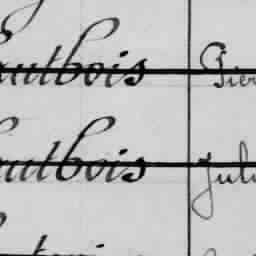 autbois Pier
autbois Juli